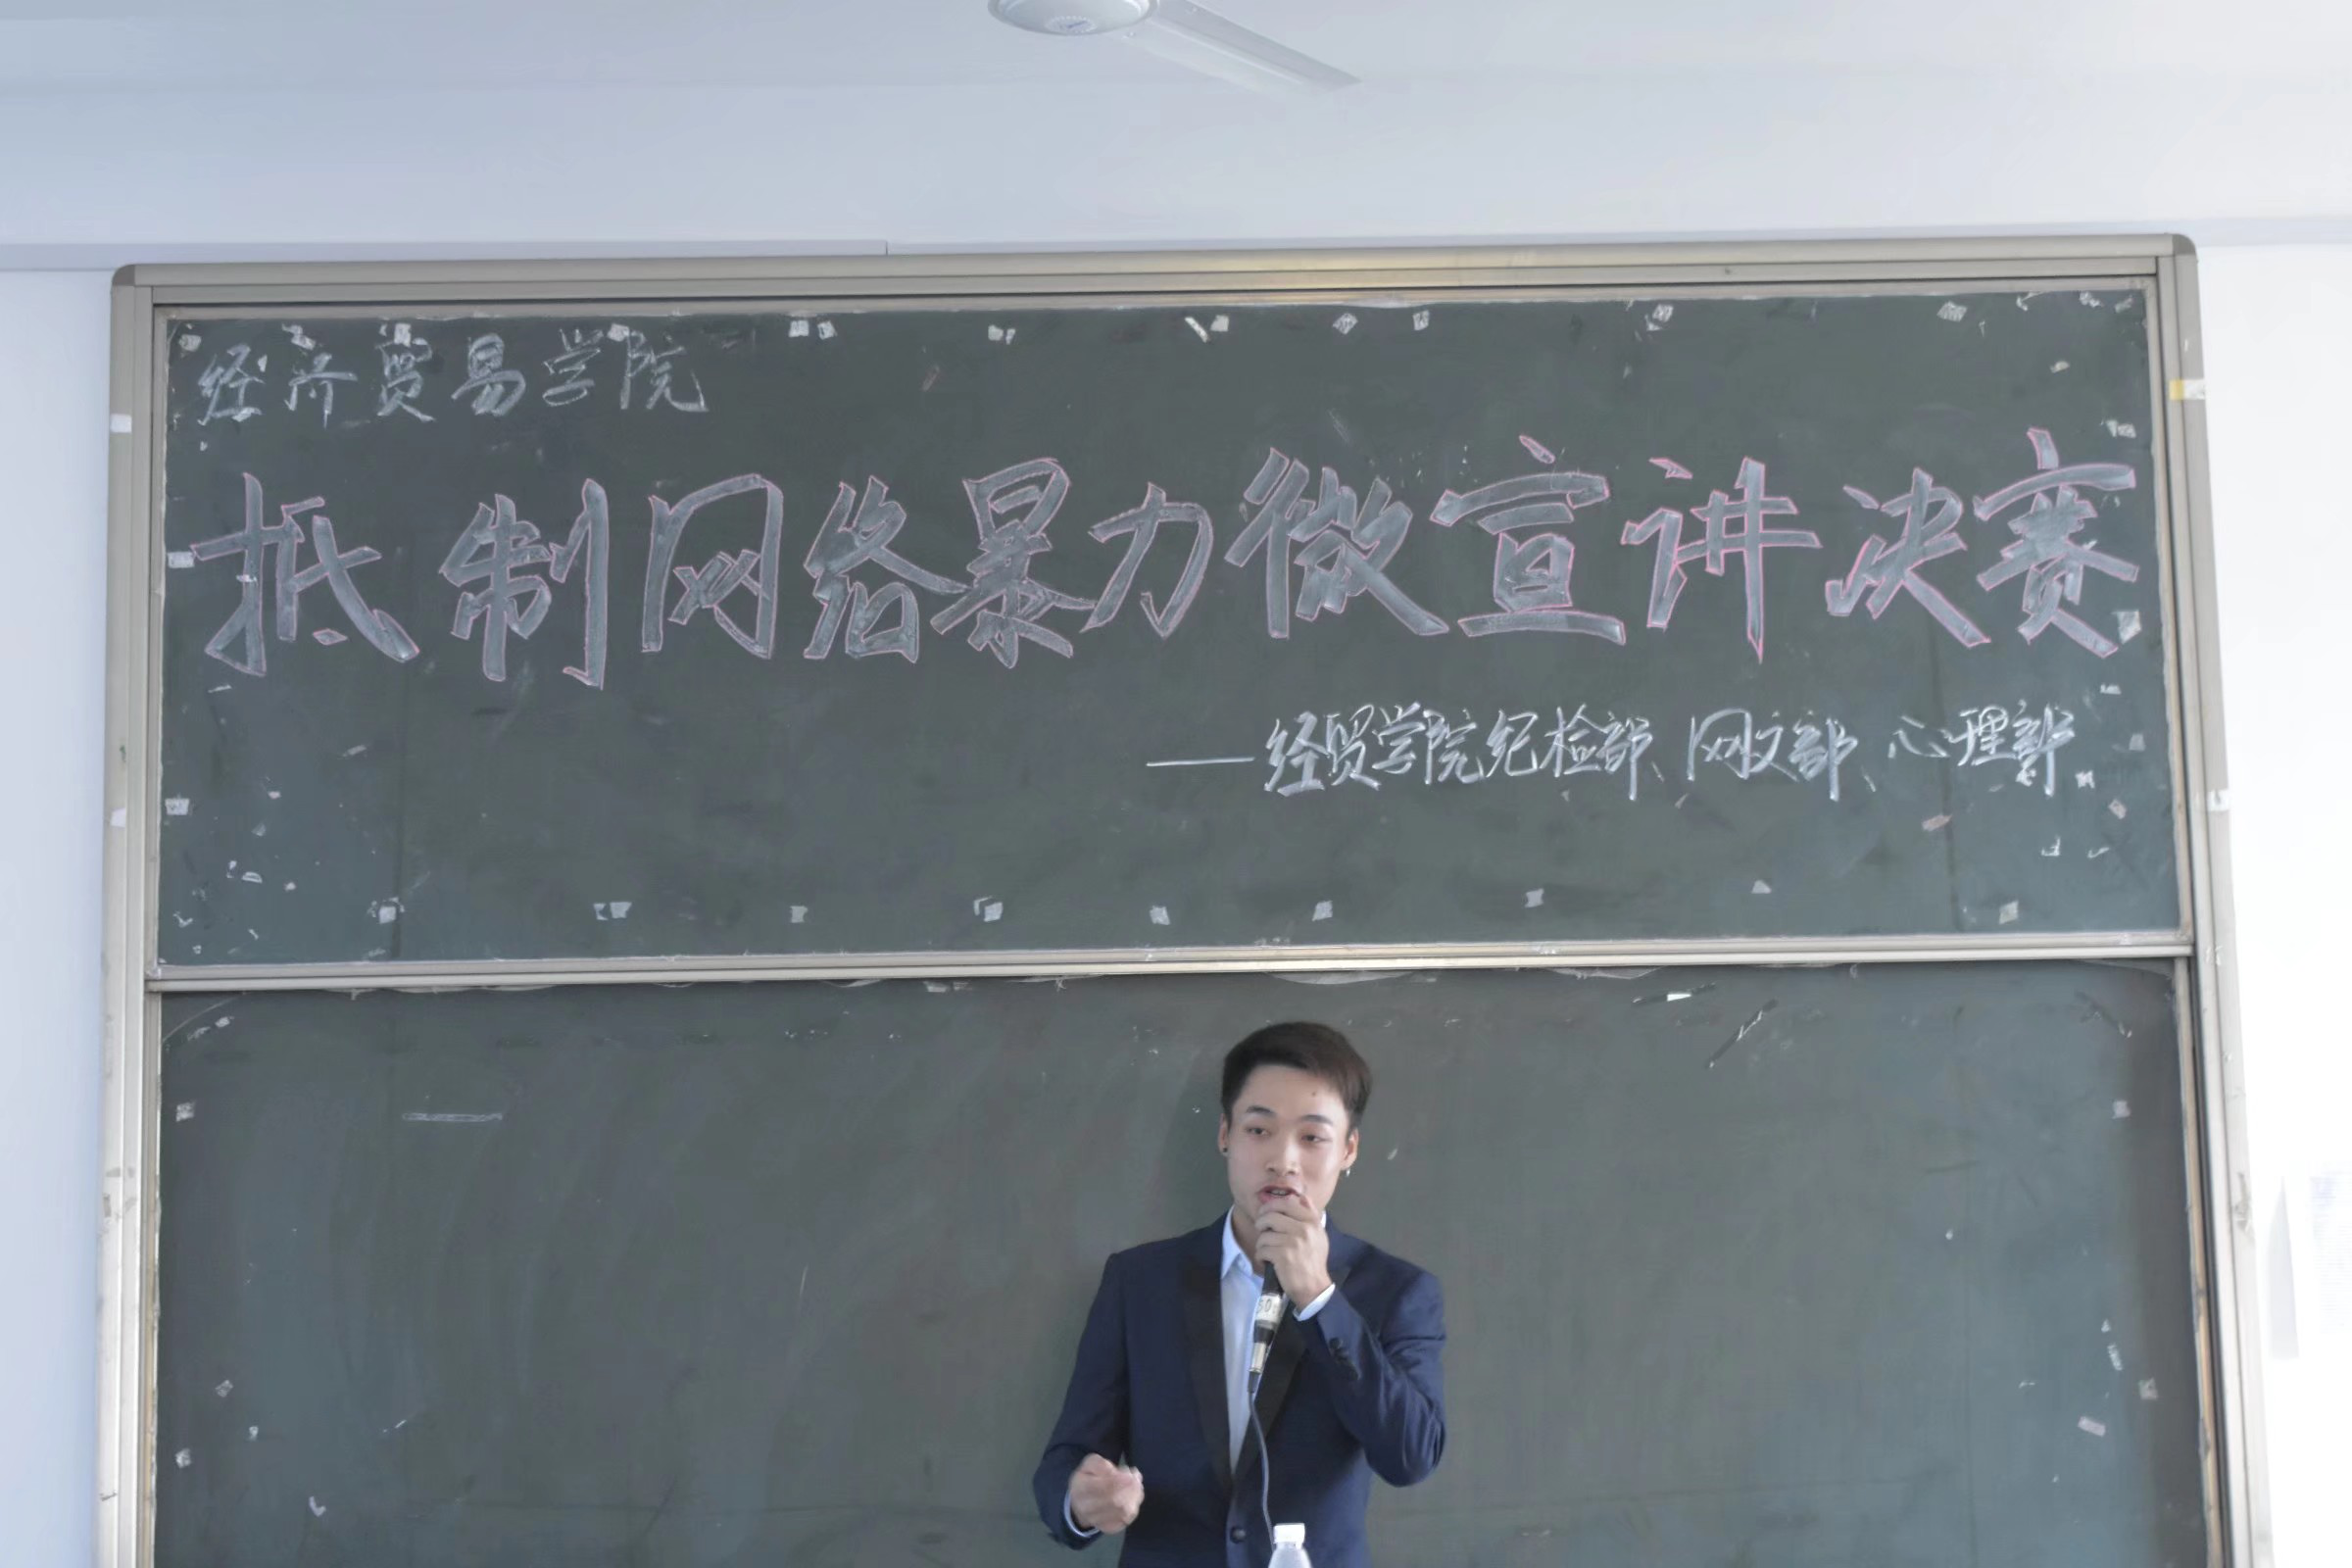 经济贸易学院
抵制网络暴力微宣讲决赛
——经贸学院纪检部、网文部、心理部